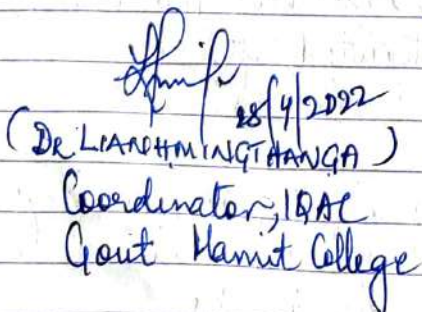 28/4/2022
(DR LIANHMINGTHANGA)
Coordinator, IQAC
Govt Hamit College